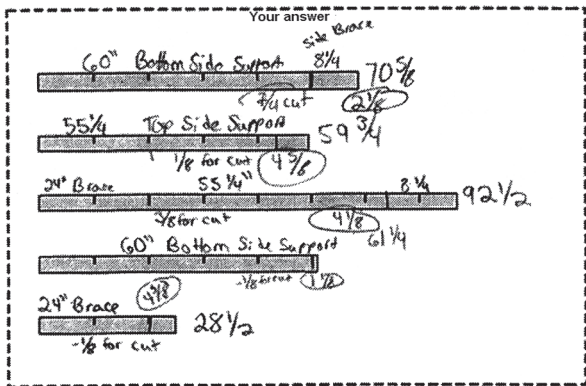 Your answer
Side Brace
60" Bottom Side Support 8 1/4
70 5/8
1/4 cut 2 1/8
55 1/4 Top Side Support
59 3/4
1/8 for cut 4 5/8
24" Brace 55 1/4" 8 1/4
92 1/2
3/8 for cut 4 1/8
61 1/4
60" Bottom Side Support
-1/8 for cut 1 1/8
24" Brace 4 3/8
28 1/2
-1/8 for cut